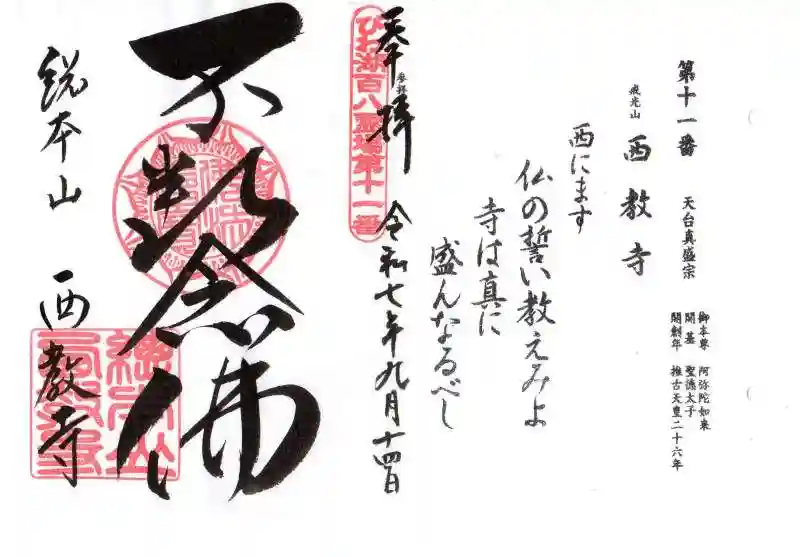 第十一番 天台真盛宗
戒光山 西教寺
御本尊 阿弥陀如来
開基 聖徳太子
開創年 推古天皇二十六年
西にます
仏の誓い教えみよ
寺は真に
盛んなるべし
奉拝
参拝
びわ湖百八霊場第十一番
令和七年九月十四日
不断念佛
総本山 西教寺